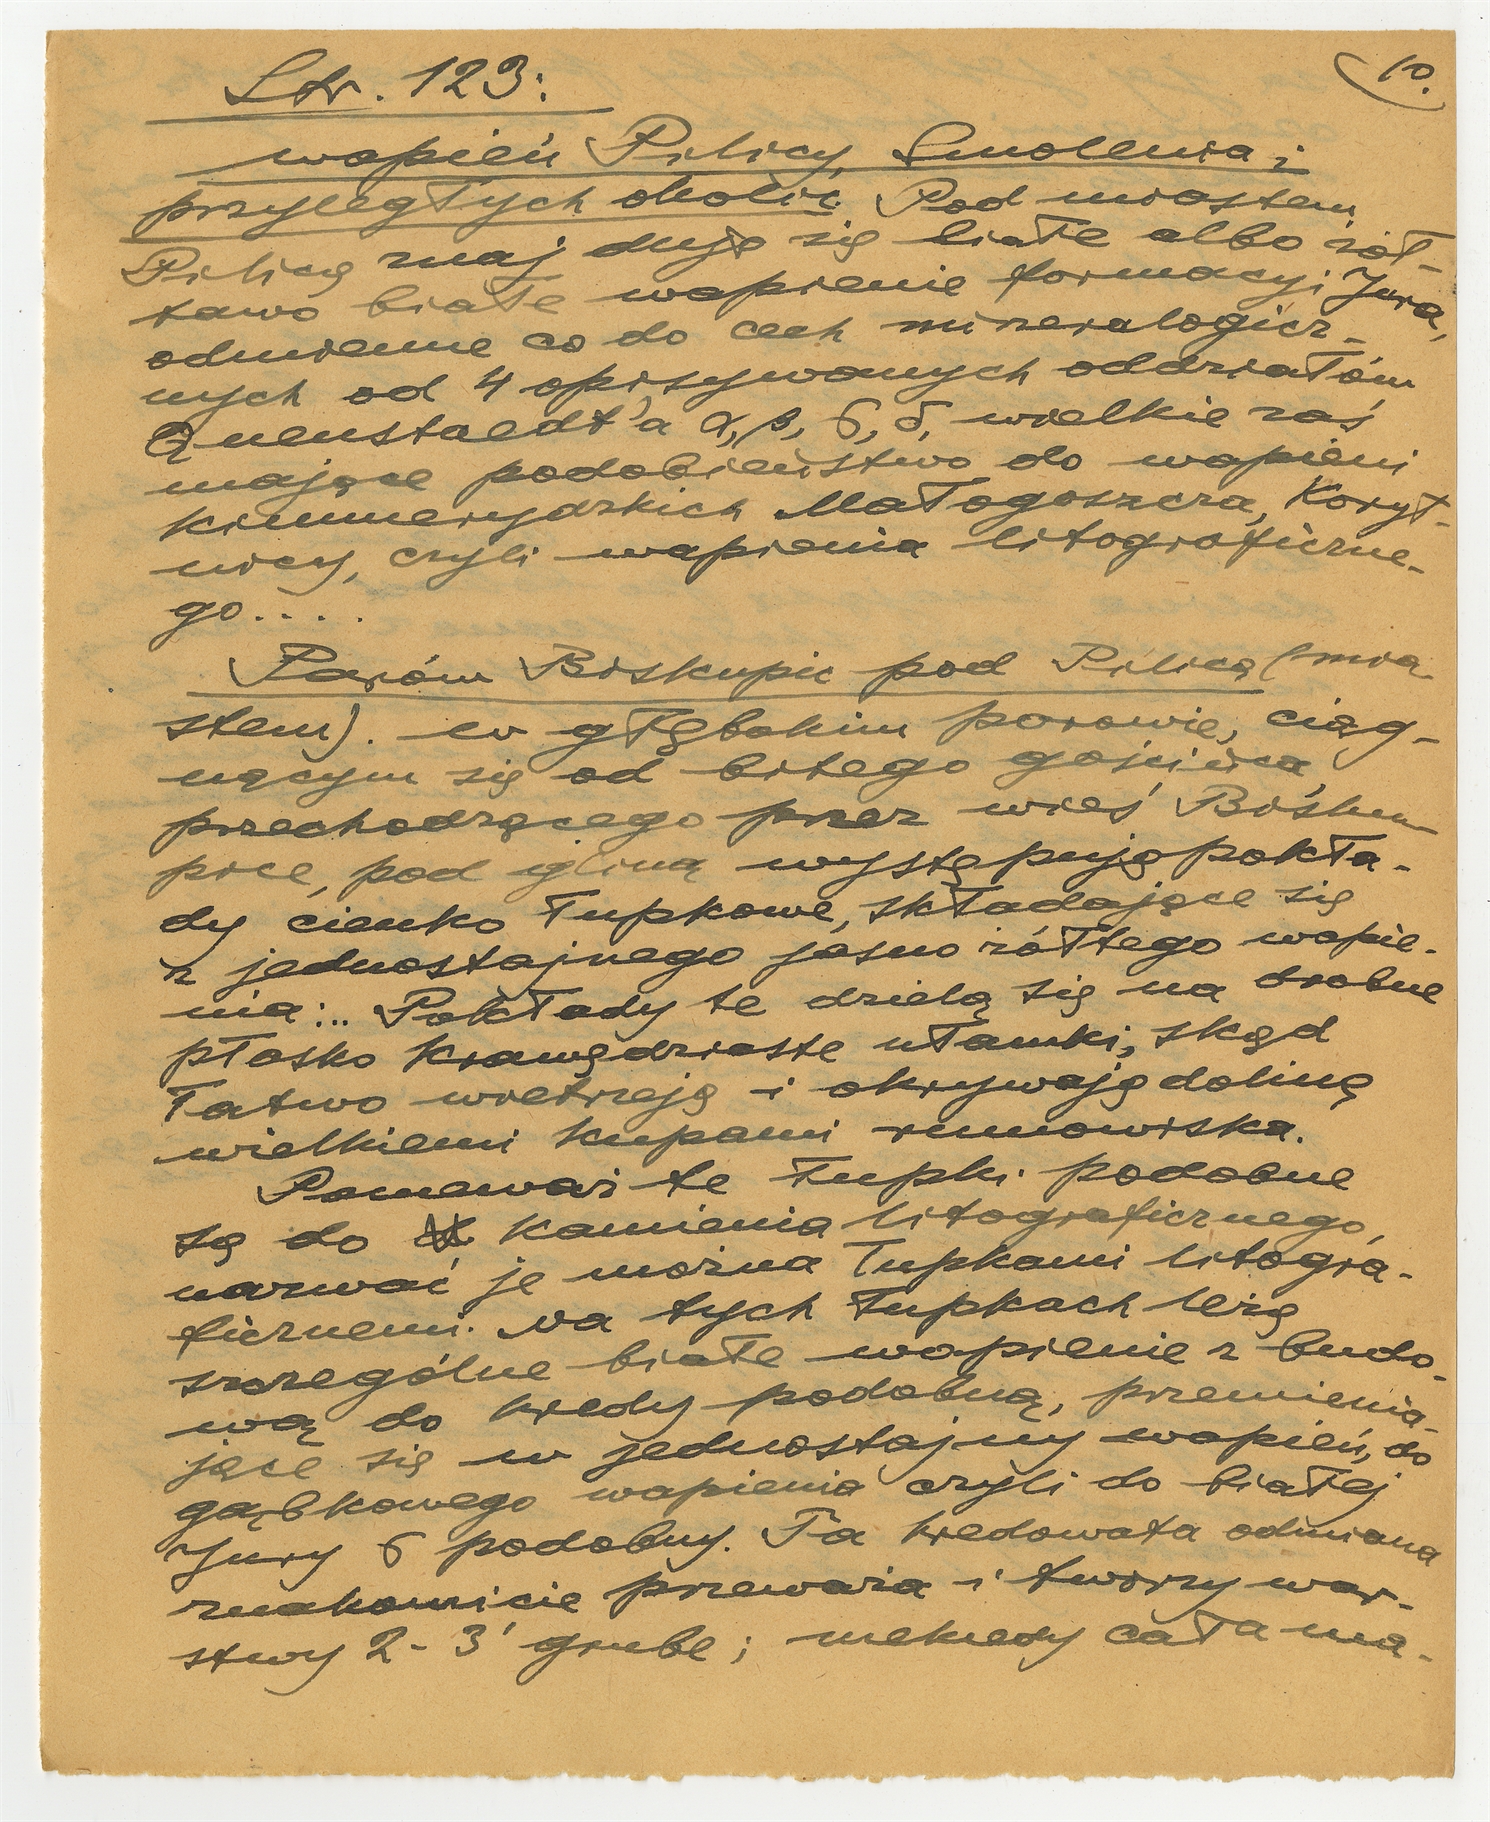 10.
Str. 123:
wapień Pilicy, Smolenia i
przyległych okolic. Pod miastem
Pilicą znajdują się białe albo żół-
tawo białe wapienie formacyi Jura,
odmienne co do cech mineralogicz-
nych od 4 opisywanych oddziałów
Quenstaedt'a α, β, γ, δ, wielkie zaś
mające podobieństwo do wapieni
kimmerydzkich Małogoszcza, Koryt-
nicy, czyli wapienia litograficzne-
go....
Parów Biskupic pod Pilicą (mia-
stem). w głębokim parowie, ciąg-
nącym się od bitego gościńca
przechodzącego przez wieś Bisku-
pice, pod gliną występują pokła-
dy cienko łupkowe, składające się
z jednostajnego jasno żółtego wapie-
nia:.. Pokłady te dzielą się na drobne
płasko krawędziaste ułamki, skąd
łatwo wietrzeją i okrywają dolinę
wielkiemi kupami rumowiska.
Ponieważ te łupki podobne
są do kamienia litograficznego,
nazwać je można łupkami litogra-
ficznemi. Na tych łupkach leżą
szczególne białe wapienie z budo-
wą do kredy podobną, przemienia-
jące się w jednostajny wapień, do
gąbkowego wapienia czyli do białej
Jury γ podobny. Ta kredowata odmiana
znakomicie przeważa i tworzy war-
stwy 2-3' grube; niekiedy cała ma-